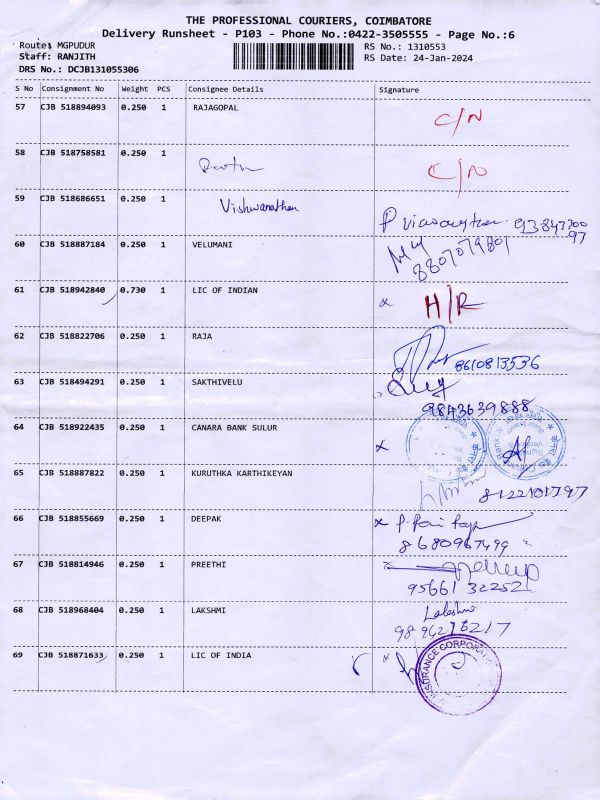 THE PROFESSIONAL COURIERS, COIMBATORE
Delivery Runsheet - P103 - Phone No.:0422-3505555 - Page No.:6
Route: MGPUDUR RS No.: 1310553
Staff: RANJITH RS Date: 24-Jan-2024
DRS No.: DCJB131055306
S No Consignment No Weight PCS Consignee Details Signature
57 CJB 518894093 0.250 1 RAJAGOPAL C/N
58 CJB 518758581 0.250 1 C/N
59 CJB 518686651 0.250 1 Vishwanathan
60 CJB 518887184 0.250 1 VELUMANI
8807079801
61 CJB 518942840 0.730 1 LIC OF INDIAN x H/R
62 CJB 518822706 0.250 1 RAJA
8610813536
63 CJB 518494291 0.250 1 SAKTHIVELU
9843639888
64 CJB 518922435 0.250 1 CANARA BANK SULUR x
65 CJB 518887822 0.250 1 KURUTHKA KARTHIKEYAN
8122101797
66 CJB 518855669 0.250 1 DEEPAK x
8680967499
67 CJB 518814946 0.250 1 PREETHI
95661 32252
68 CJB 518968404 0.250 1 LAKSHMI Lakshmi
69 CJB 518871633 0.250 1 LIC OF INDIA x
INSURANCE CORPORATION